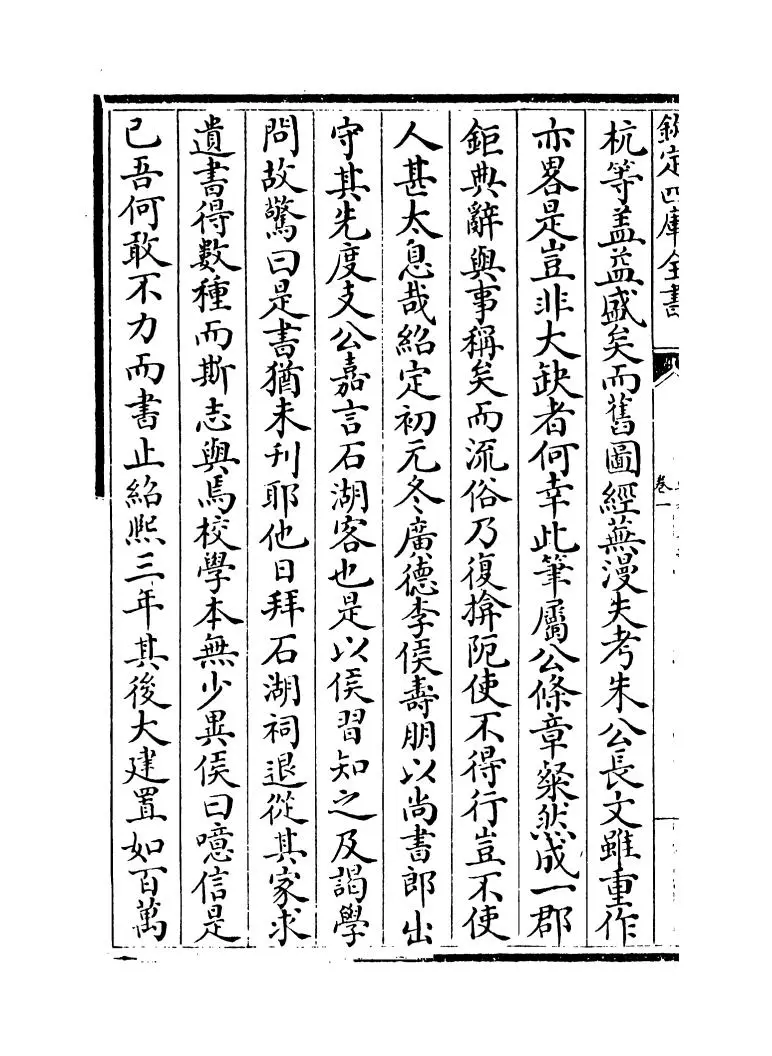 欽定四庫全書
卷一
杭等盖益盛矣而舊圖經蕪漫失考朱公長文雖重作
亦畧是豈非大缺者何幸此筆屬公條章粲然成一郡
鉅典辭與事稱矣而流俗乃復揜阨使不得行豈不使
人甚太息哉紹定初元冬廣德李侯壽朋以尚書郎出
守其先度支公嘉言石湖客也是以侯習知之及謁學
問故驚曰是書猶未刋耶他日拜石湖祠退從其家求
遺書得數種而斯志與焉校學本無少異侯曰噫信是
已吾何敢不力而書止紹熙三年其後大建置如百萬